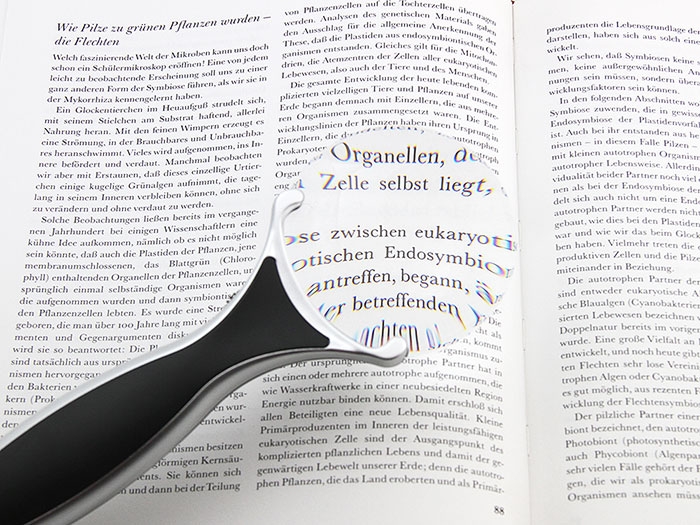 Wie Pilze zu grünen Pflanzen wurden –
die Flechten
Welch faszinierende Welt der Mikroben kann uns doch
schon ein Schülermikroskop eröffnen! Eine von jedem
leicht zu beobachtende Erscheinung soll uns zu einer
ganz anderen Form der Symbiose führen, als wir sie in
der Mykorrhiza kennengelernt haben.
Ein Glockentierchen im Heuaufguß strudelt sich,
mit seinem Stielchen am Substrat haftend, allerlei
Nahrung heran. Mit den feinen Wimpern erzeugt es
eine Strömung, in der Brauchbares und Unbrauchba-
res heranschwimmt. Vieles wird aufgenommen, ins In-
nere befördert und verdaut. Manchmal beobachten
wir aber mit Erstaunen, daß dieses einzellige Urtier-
chen einige kugelige Grünalgen aufnimmt, die tage-
lang in seinem Inneren verbleiben können, ohne sich
zu verändern und ohne verdaut zu werden.
Solche Beobachtungen ließen bereits im vergange-
nen Jahrhundert bei einigen Wissenschaftlern eine
kühne Idee aufkommen, nämlich ob es nicht möglich
sein könnte, daß auch die Plastiden der Pflanzen, jene
membranumschlossenen, das Blattgrün (Chloro-
phyll) enthaltenden Organellen der Pflanzenzellen, ur-
sprünglich einmal selbständige Organismen waren,
die aufgenommen wurden und dann symbiontisch
den Pflanzenzellen lebten. Es wurde eine Streit
geboren, die man über 100 Jahre lang mit vi
menten und Gegenargumenten disku
wird sie so beantwortet: Die Pl
sind tatsächlich aus urspr
nismen hervorgegan
den Bakterien
kern (Prok
nismen wur-
entwickel-
nismen besitzen
förmigen Kernsäu-
Sie können sich
und dann bei der Teilung
von Pflanzenzellen auf die Tochterzellen übertragen
werden. Analysen des genetischen Materials gaben
den Ausschlag für die allgemeine Anerkennung der
These, daß die Plastiden aus endosymbiontischen Or-
ganismen entstanden. Gleiches gilt für die Mitochon-
drien, die Atemzentren der Zellen aller eukaryotischen
Lebewesen, also auch der Tiere und des Menschen.
Die gesamte Entwicklung der heute lebenden kom-
plizierten vielzelligen Tiere und Pflanzen auf unserer
Erde begann demnach mit Einzellern, die aus mehre-
ren Organismen zusammengesetzt waren. Die Ent-
wicklungslinien der Pflanzen haben ihren Ursprung in
Einzellern, die
Prokaryoten
wurden,
Organ
eng
Organellen,
Zelle selbst liegt,
ose zwischen eukaryoti
otischen Endosymbio
antreffen, begann,
er betreffenden
ochten
Die
cht als
kommt
rganismus zu-
Der ursprüng trophe Partner hat in
sich einen oder mehrere autotrophe aufgenommen, die
wie Wasserkraftwerke in einer neubesiedelten Region
Energie nutzbar binden können. Damit erschloß sich
allen Beteiligten eine neue Lebensqualität. Kleine
Primärproduzenten im Inneren der leistungsfähigen
eukaryotischen Zelle sind der Ausgangspunkt des
komplizierten pflanzlichen Lebens und damit der ge-
genwärtigen Lebewelt unserer Erde; denn die autotro-
phen Pflanzen, die das Land eroberten und als Primär-
88
produzenten die Lebensgrundlage der
darstellen, haben sich aus solch eine
wickelt.
Wir sehen, daß Symbiosen keine s
men, keine außergewöhnlichen An
dungen sein müssen, sondern übera
wicklungsfaktoren sein können.
In den folgenden Abschnitten wo
Symbiose zuwenden, die in gewisse
Endosymbiose der Plastidenvorfal
ist. Auch bei ihr entstanden aus he
nismen – in diesem Falle Pilzen –
mit kleinen autotrophen Organism
autotropher Lebensweise. Allerdin
vidualität beider Partner noch viel d
nen als bei der Endosymbiose der
delt sich auch nicht um eine Endos
autotrophen Partner werden nicht
gebaut, wie dies bei den Plastiden
war und wie wir das beim Glock
ben haben. Vielmehr treten die
produktiven Zellen und die Pilze
miteinander in Beziehung.
Die autotrophen Partner der
sind entweder eukaryotische Al
sche Blaualgen (Cyanobakterien
ierten Lebewesen bezeichnen w
Doppelnatur bereits im vorigen
wurde. Eine große Vielfalt an
entwickelt, und noch heute gib
ten Flechten sehr lose Vereini
trophen Algen oder Cyanobak
es gut möglich, aus rezenten F
wicklung der Flechtensymbios
Der pilzliche Partner eine
biont bezeichnet, den autotrop
Photobiont (photosynthetisc
auch Phycobiont (Algenpar
sehr vielen Fällen gehört der P
an, die wir als prokaryotis
Organismen ansehen müss